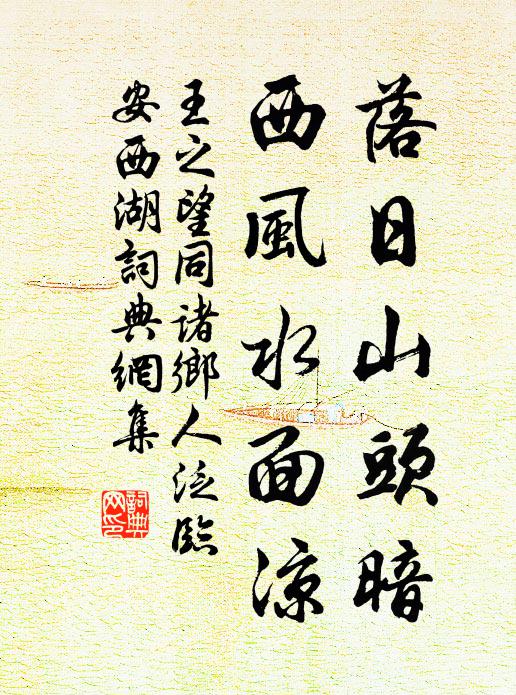 落日山頭暗
西風水面涼
王之望同諸鄉人泛臨
安西湖詞典網集
詞典
网印